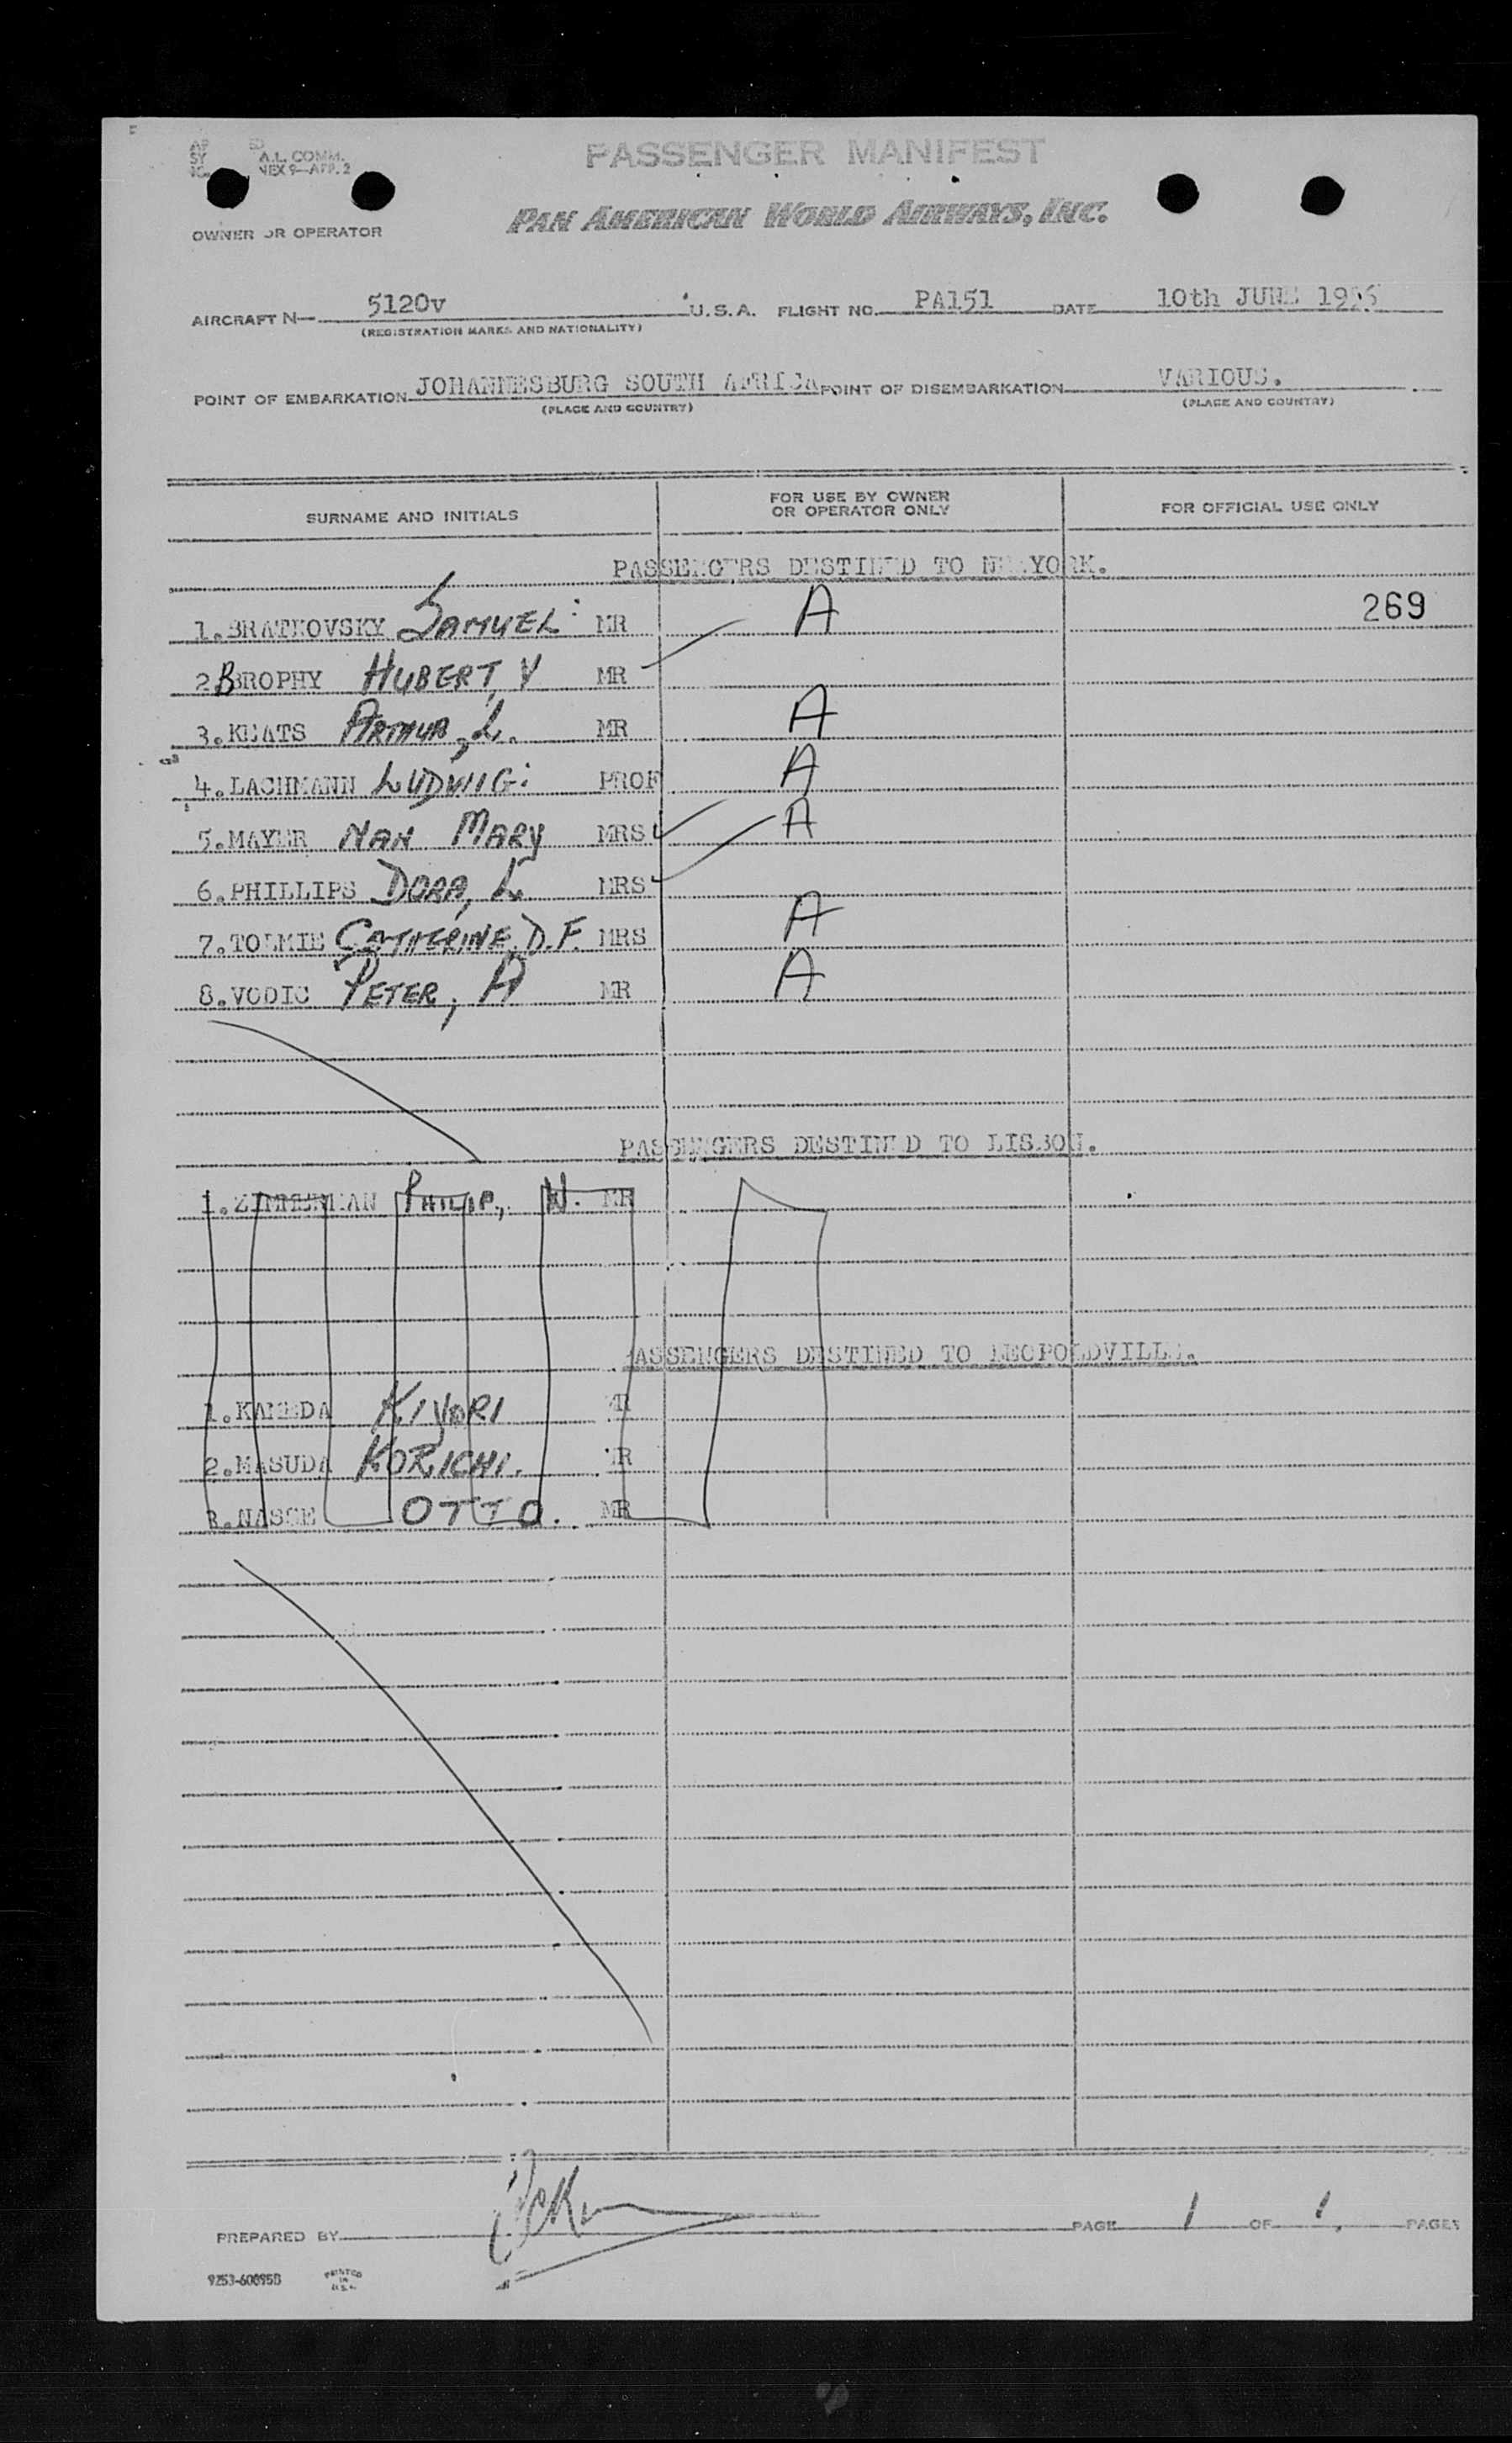 A.L. COMM.
NEX 9—APP. 2
PASSENGER MANIFEST
PAN AMERICAN WORLD AIRWAYS, INC.
OWNER OR OPERATOR
AIRCRAFT N— 5120v U.S.A. FLIGHT NO. PA151 DATE 10th JUNE
(REGISTRATION MARKS AND NATIONALITY)
POINT OF EMBARKATION JOHANNESBURG SOUTH AFRICA POINT OF DISEMBARKATION VARIOUS.
(PLACE AND COUNTRY) (PLACE AND COUNTRY)
SURNAME AND INITIALS FOR USE BY OWNER OR OPERATOR ONLY FOR OFFICIAL USE ONLY
PASSENGERS DESTINED TO NEW YORK.
1.BRATKOVSKY SAMUEL MR A 269
2.BROPHY HUBERT, V MR
3.KEATS ARTHUR, L. MR A
4.LACHMANN LUDWIG. PROF A
5.MAYER NAN MARY MRS A
6.PHILLIPS DORA, L MRS
7.TOLMIE CATHERINE, D.F. MRS A
8.VODIC PETER, A MR A
PASSENGERS DESTINED TO LISBON.
1.ZIMMERMAN PHILIP, W. MR
PASSENGERS DESTINED TO LEOPOLDVILLE.
1.KAMEDA KIYORI MR
2.MASUDA KORICHI. MR
3. OTTO. MR
PREPARED BY PAGE 1 OF 1. PAGES
9253-60095B PRINTED IN U.S.A.